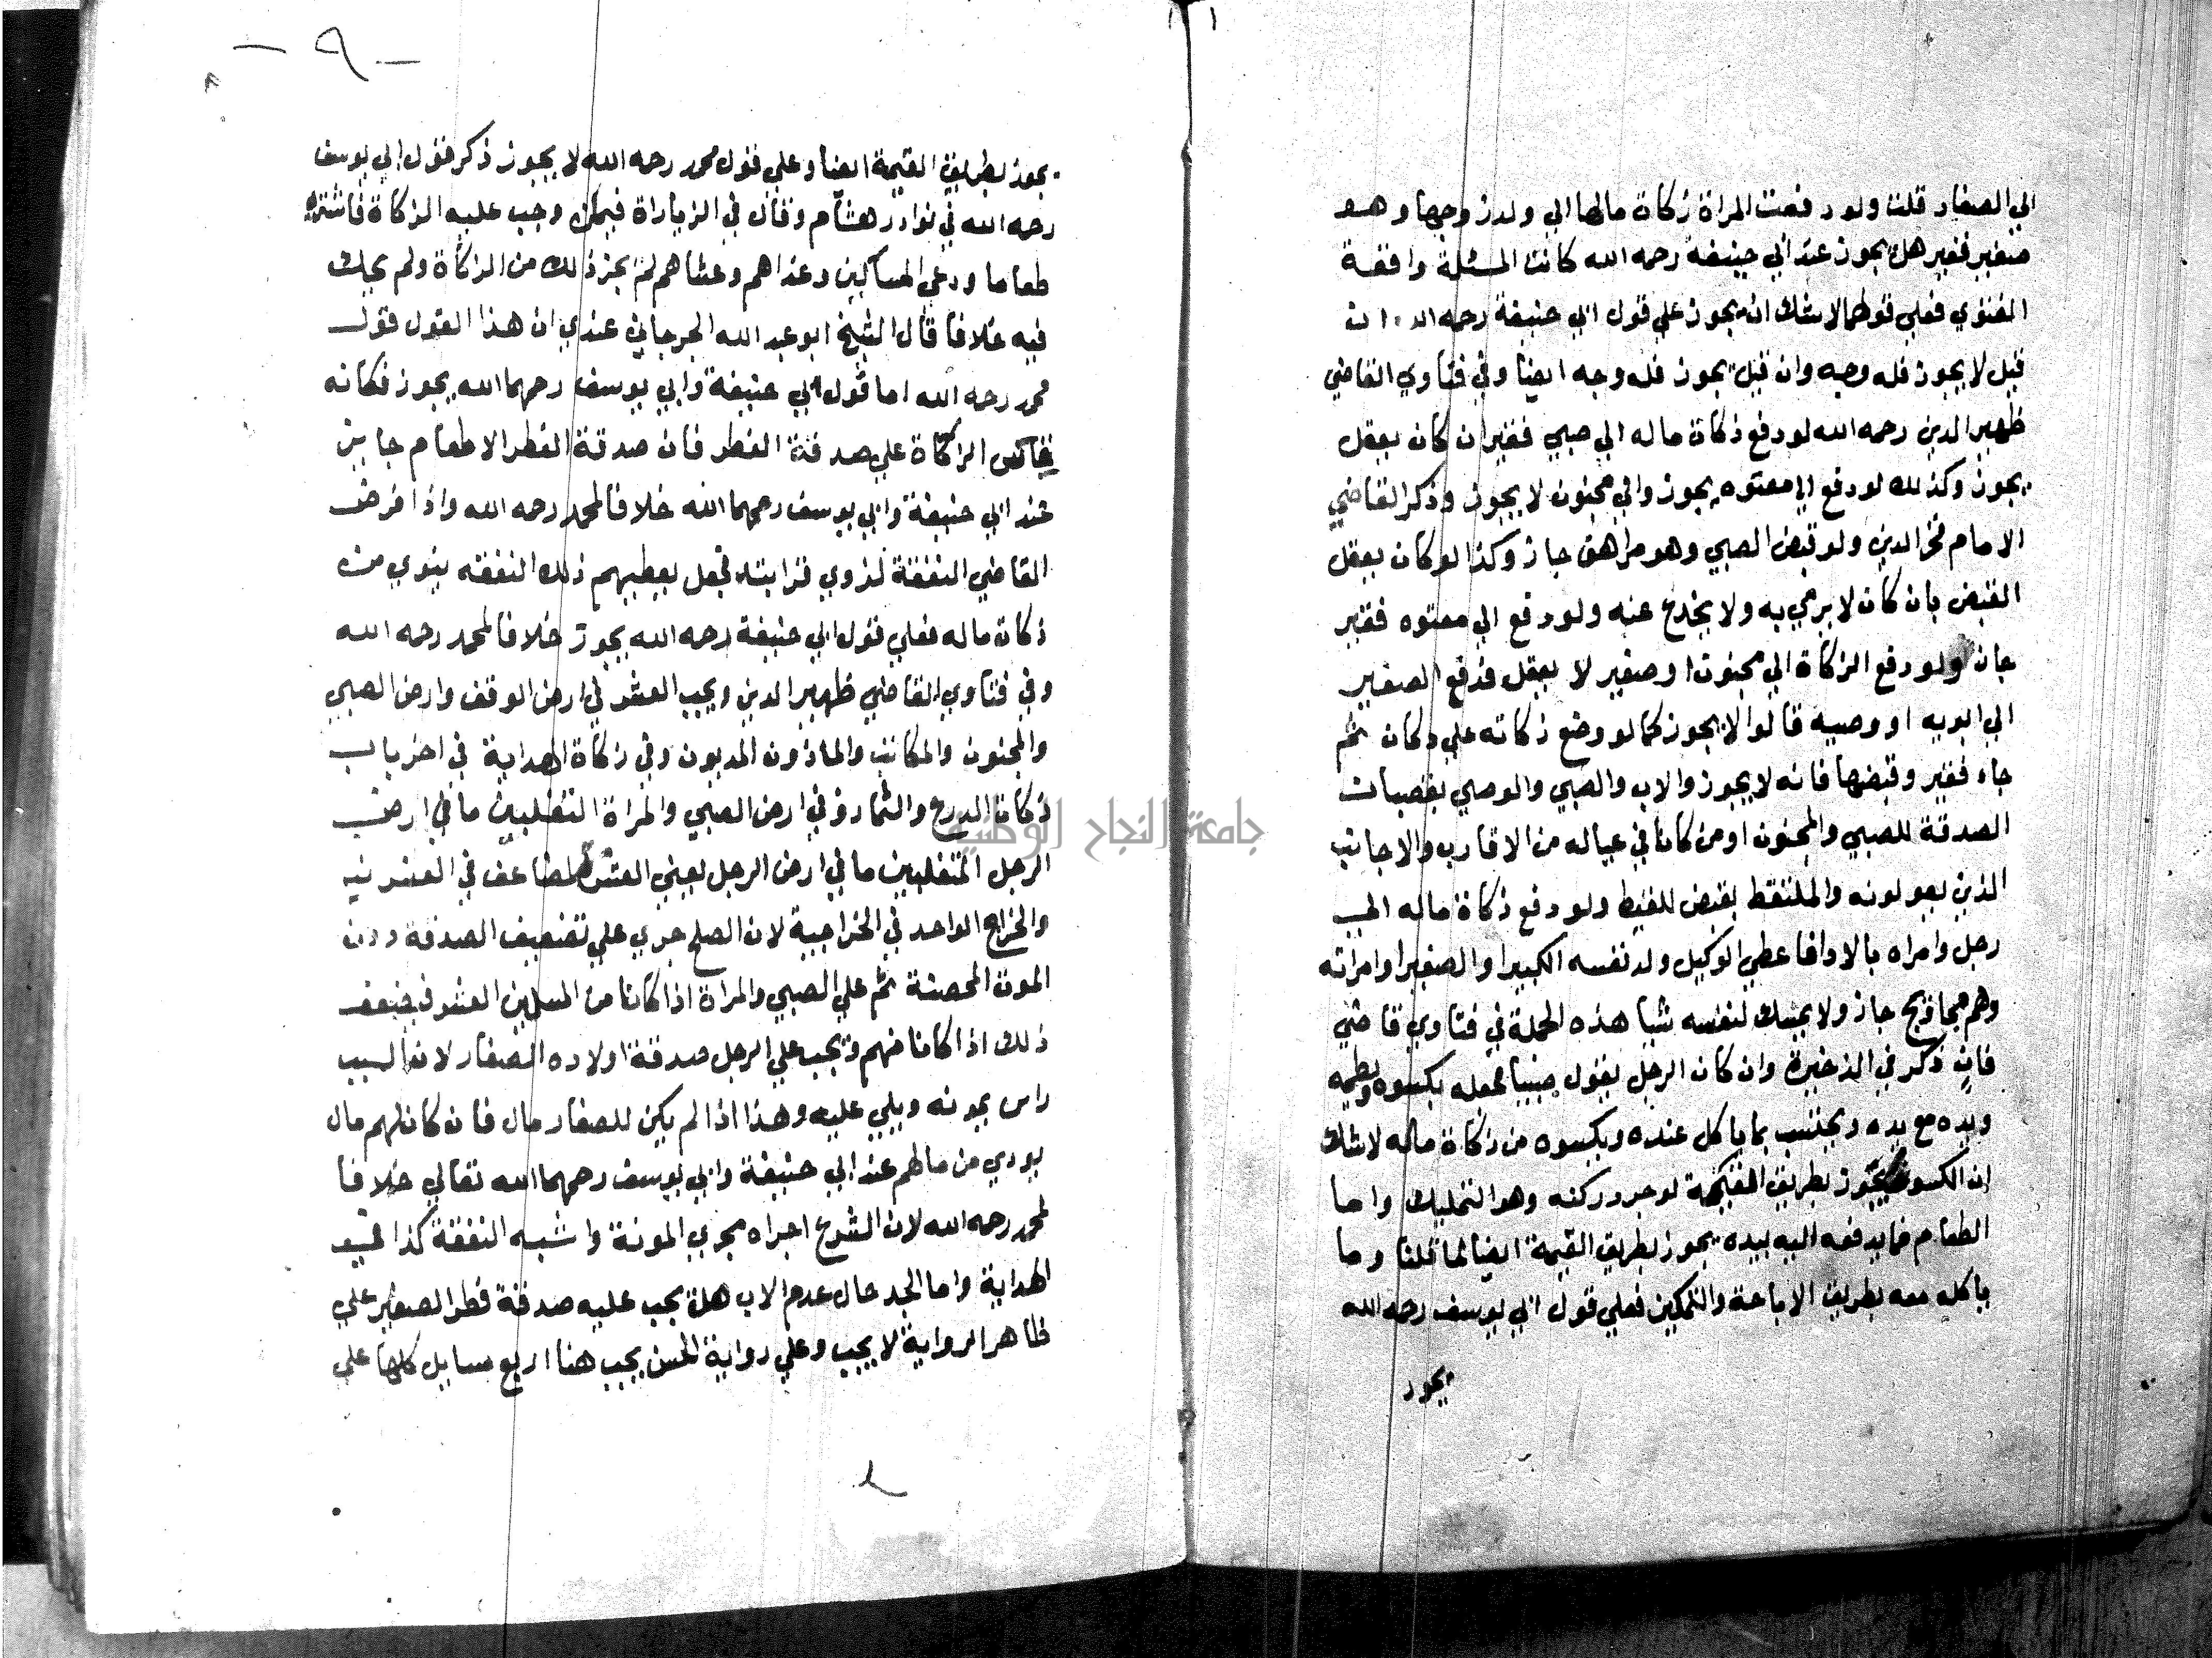 الي الصغار قلت ولو دفعت المراة زكاة مالها الي ولد زوجها وهو
صغير فقير هل يجوز عند ابي حنيفة رحمه الله كانت المسئلة واقعة
الفتوي فعلي قولهما لاشك انه يجوز علي قول ابي حنيفة رحمه الله ان
قيل لا يجوز فله وجه وان قيل يجوز فله وجه ايضا وفي فتاوي القاضي
ظهير الدين رحمه الله لو دفع زكاة ماله الي صبي فقير ان كان يعقل
يجوز وكذلك لو دفع الي معتوه يجوز والي مجنون لا يجوز وذكر القاضي
الامام فخر الدين ولو قبض الصبي وهو مراهق جاز وكذا لو كان يعقل
القبض بان كان لا يرمي به ولا يخدع عنه ولو دفع الي معتوه فقير
جاز ولو دفع الزكاة الي مجنون او صغير لا يعقل فدفع الصغير
الي ابويه او وصيه قالوا لا يجوز كما لو وضع زكاته علي دكان ثم
جاء فقير وقبضها فانه لا يجوز والاب والصبي والوصي يقبضان
الصدقة للصبي والمجنون او من كانا في عياله من الاقارب والاجانب
الذين يعولونه والملتقط يقبض للقيط ولو دفع زكاة ماله الي
رجل وامره بالاداء فاعطي الوكيل ولد نفسه الكبير او الصغير او امراته
وهم محاويج جاز ولا يمسك لنفسه شيا هذه الجملة في فتاوي قاضي
خان ذكر في الذخيرة وان كان الرجل يعول صبيا فجعله يكسوه ويطعمه
ويده مع يده ويحتسب بما ياكل عنده ويكسوه من زكاة ماله لاشك
ان الكسوة يجوز بطريق القيمة لوجود ركنه وهو التمليك واما
الطعام فما يدفعه اليه بيده يجوز بطريق القيمة ايضا لما قلنا وما
ياكله معه بطريق الاباحة والتمكين فعلي قول ابي يوسف رحمه الله
يجوز
- ٩ -
يجوز بطريق القيمة ايضا وعلي قول محمد رحمه الله لا يجوز ذكر قول ابي يوسف
رحمه الله في نوادر هشام وقال في الزيارات فيمن وجب عليه الزكاة فاشتري
طعاما ودعي المساكين وغداهم وعشاهم لم يجز ذلك من الزكاة ولم يحك
فيه خلافا قال الشيخ ابو عبد الله الجرجاني عندي ان هذا القول قول
محمد رحمه الله اما قول ابي حنيفة وابي يوسف رحمهما الله يجوز فكانه
يقاس الزكاة علي صدقة الفطر فان صدقة الفطر الاطعام جايز
عند ابي حنيفة وابي يوسف رحمهما الله خلافا لمحمد رحمه الله واذا فرض
القاضي النفقة لذوي قرابته فجعل يعطيهم ذلك النفقه ينوي من
زكاة ماله فعلي قول ابي حنيفة رحمه الله يجوز خلافا لمحمد رحمه الله
وفي فتاوي القاضي ظهير الدين ويجب العشر في ارض الوقف وارض الصبي
والمجنون والمكاتب والماذون المديون وفي زكاة الهداية في اخر باب
زكاة الزرع والثمار وفي ارض الصبي والمراة التغلبيين ما في ارض
الرجل المتغلبين ما في ارض الرجل يعني العشر المضاعف في العشرية
والخراج الواحد في الخراجية لان الصلح جري علي تضعيف الصدقة دون
المون المحصنة ثم علي الصبي والمراة اذا كانا من المسلمين العشر فيضعف
ذلك اذا كانا منهم ويجب علي الرجل صدقة اولاده الصغار لانه السبب
راس يمونه ويلي عليه وهذا اذا لم يكن للصغار مال فان كان لهم مال
يودي من مالهم عند ابي حنيفة وابي يوسف رحمهما الله تعالي خلافا
لمحمد رحمه الله لان الشرع اجراه مجري المونة واشبه النفقة كذا في
الهداية واما الجد حال عدم الاب هل يجب عليه صدقة فطر الصغير علي
ظاهر الرواية لا يجب وعلي رواية الحسن يجب هنا اربع مسايل كلها علي
جامعة النجاح الوطنية